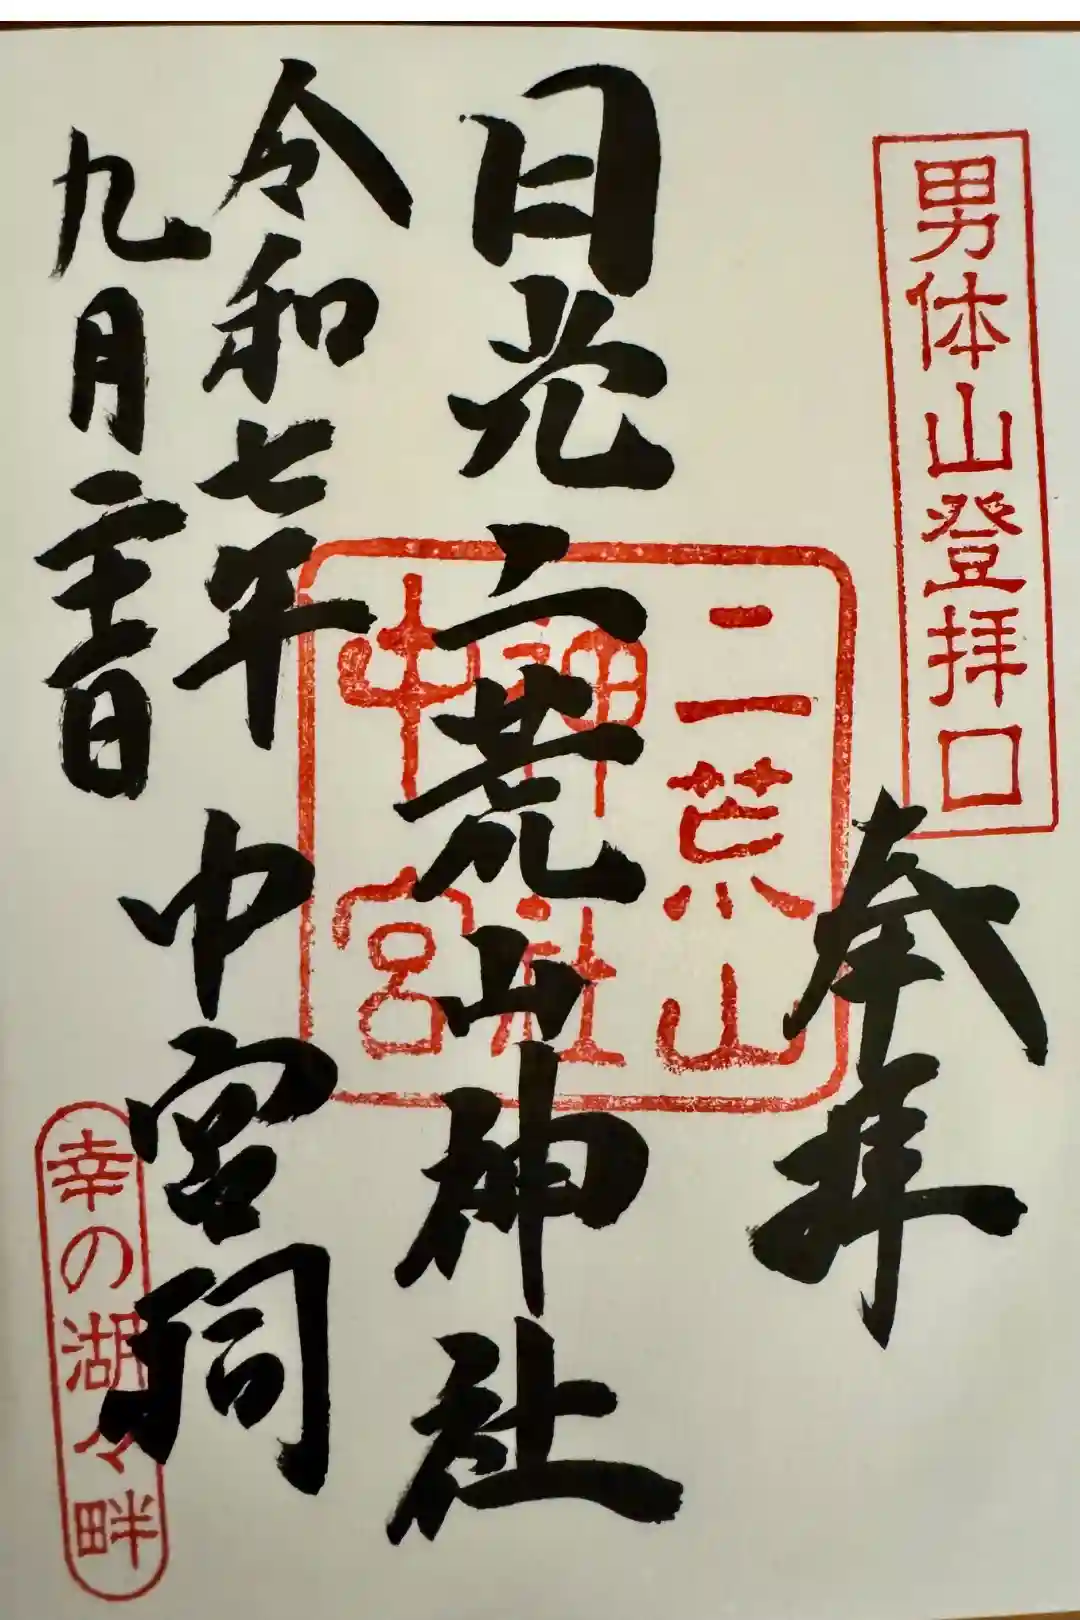 男体山登拝口
奉拝
日光二荒山神社
二荒山
神社
中宮
令和七年
九月二十一日
中宮祠
幸の湖々畔